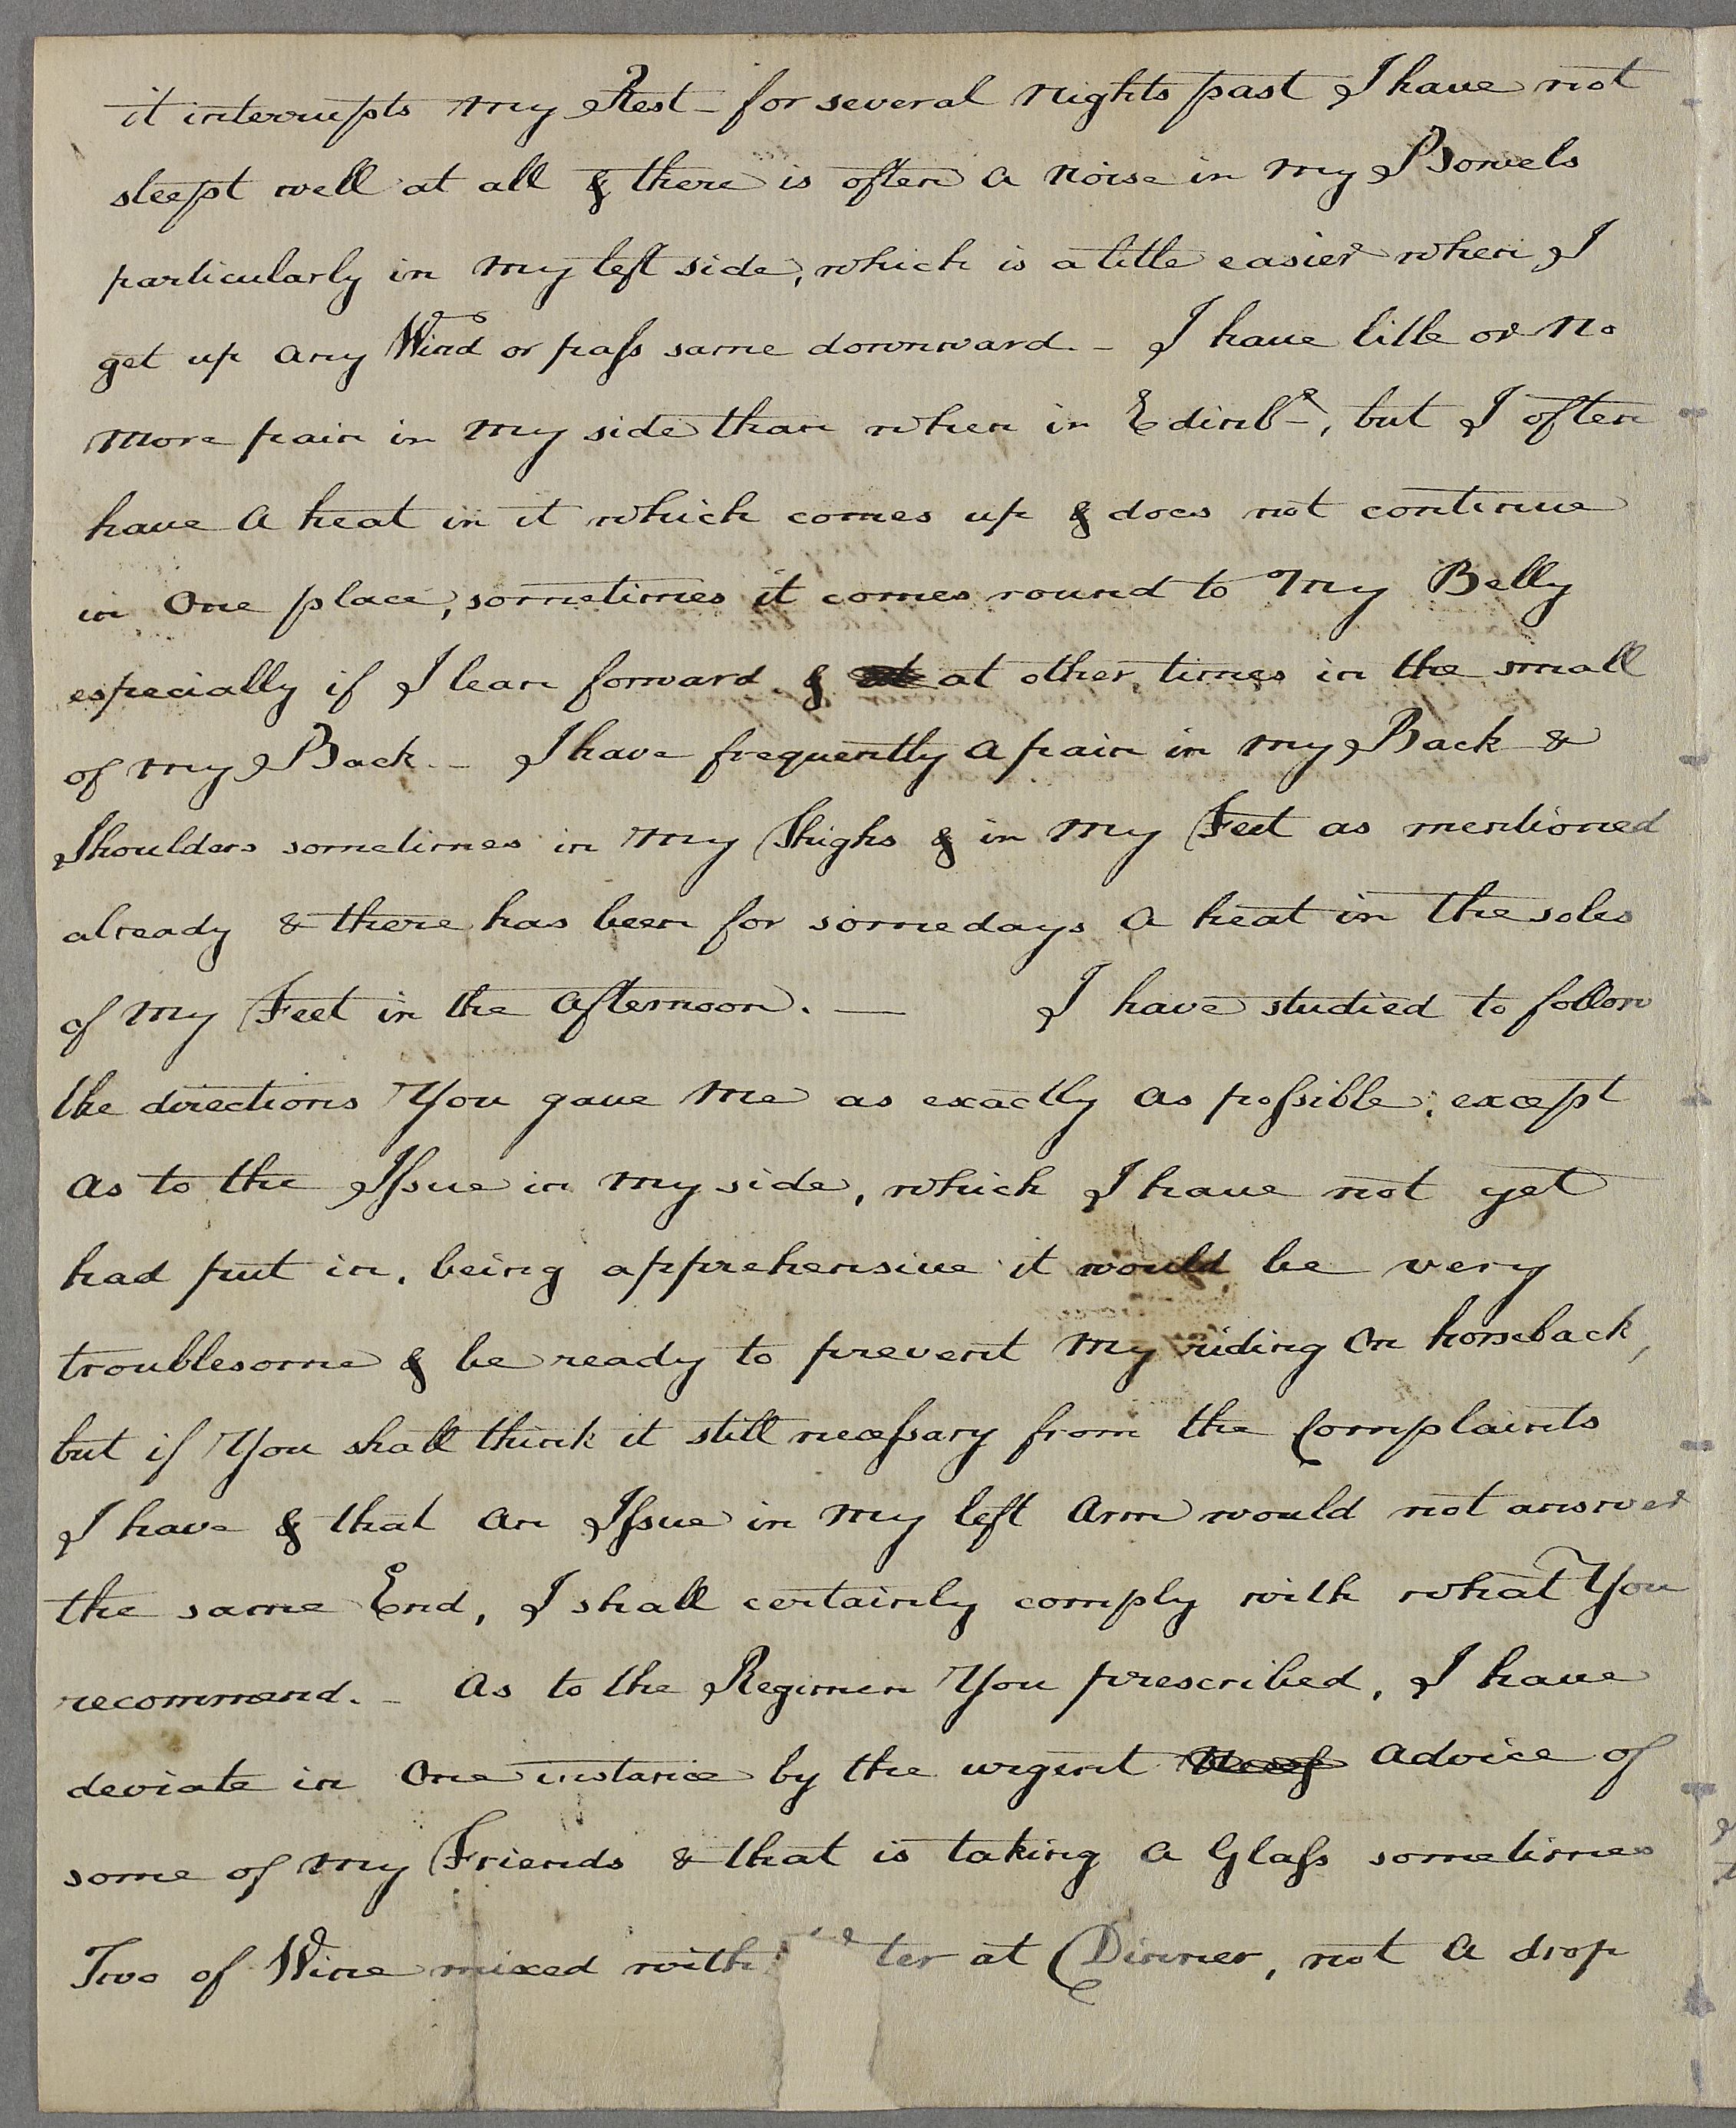 it interrupts my Rest – for several nights past I have not
sleept well at all & there is often a noise in my Bowels
particularly in my left side, which is a little easier when I
get up any Wind or pass some downward. – I have little or no
more pain in my side than when in Edinbr, but I often
have a heat in it which comes up & does not continue
in One place, sometimes it comes round to my Belly
especially if I lean forward & at other times in the small
of my Back. – I have frequently a pain in my Back &
Shoulders sometimes in my Thighs & in my Feet as mentioned
already & there has been for some days a heat in the soles
of my Feet in the afternoon. — I have studied to follow
the directions You gave me as exactly as possible, except
as to the Issue in my side, which I have not yet
had put in, being apprehensive it would be very
troublesome & be ready to prevent my riding on horseback,
but if You shall think it still necessary from the Complaints
I have & that an Issue in my left Arm would not answer
the same End, I shall certainly comply with what You
recommend. – As to the Regimen You prescribed, I have
deviate in One instance by the urgent advice of
some of my Friends & that is taking a Glass sometimes
Two of Wine mixed with ter at Dinner, not a drop